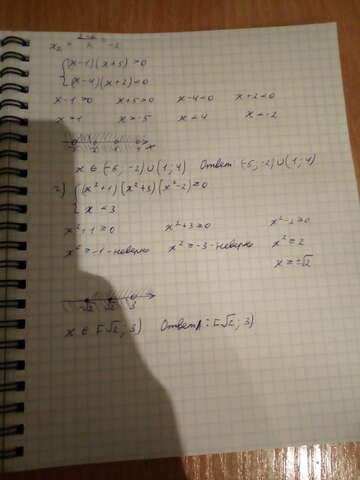 x₂ = = -2
{(x-1)(x+5)>0
{(x-4)(x+2)<0
x-1>0 x+5>0 x-4<0 x+2<0
x>1 x>-5 x<4 x<-2
x ∈ (-5; -2) ∪ (1; 4) Ответ (-5; -2) ∪ (1; 4)
2) {(x²+1)(x²+3)(x²-2)≥0
{x < 3
x²+1=0 x²+3=0 x²-2=0
x²=-1 - неверно x²=-3 - неверно x²=2
x=±√2
-√2 √2 3
x ∈ [√2; 3) Ответ: [√2; 3)